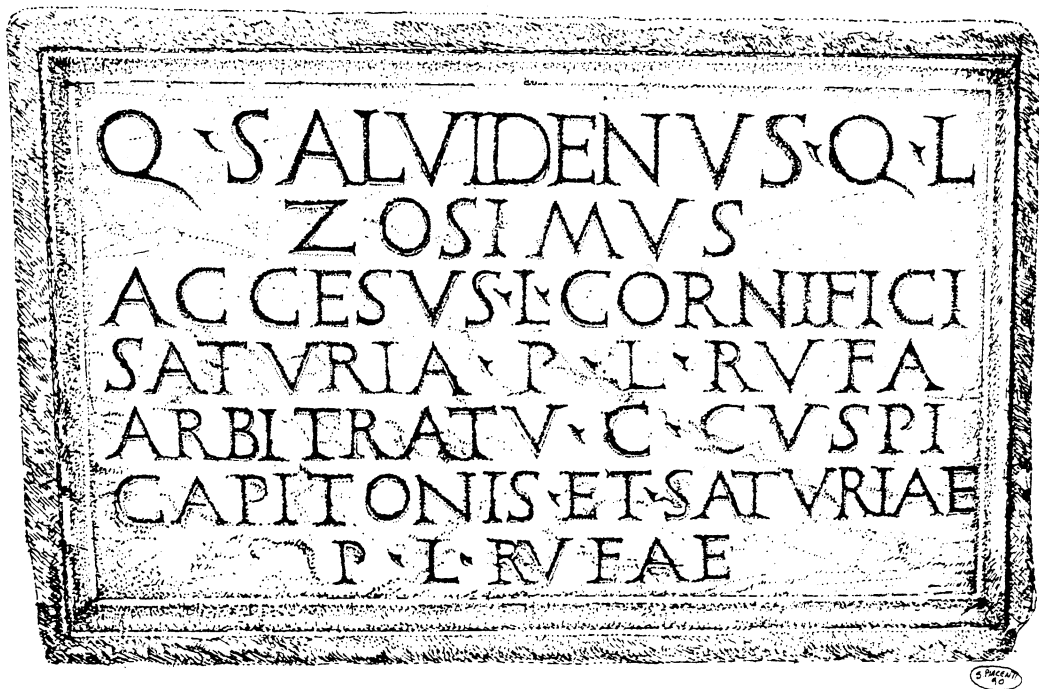 Q · SALVIDENVS · Q · L
ZOSIMVS
ACCESVS · L · CORNIFICI
SATVRIA · P · L · RVFA
ARBITRATV · C · CVSPI
CAPITONIS · ET · SATVRIAE
P · L · RVFAE
S PIACENTI
90